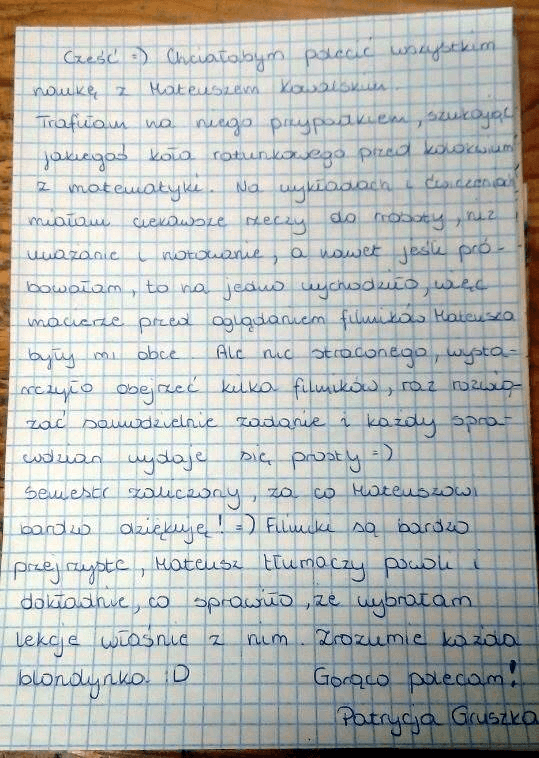 Cześć =) Chciałabym polecić wszystkim
naukę z Mateuszem Kowalskim.
Trafiłam na niego przypadkiem, szukając
jakiegoś koła ratunkowego przed kolokwium
z matematyki. Na wykładach i ćwiczeniach
miałam ciekawsze rzeczy do roboty, niż
uważanie i notowanie, a nawet jeśli pró-
bowałam, to na jedno wychodziło, więc
macierze przed oglądaniem filmików Mateusza
były mi obce. Ale nic straconego, wysta-
rczyło obejrzeć kilka filmików, raz rozwią-
zać samodzielnie zadanie i każdy spra-
wdzian wydaje się prosty =)
Semestr zaliczony, za co Mateuszowi
bardzo dziękuję! =) Filmiki są bardzo
przejrzyste, Mateusz tłumaczy powoli i
dokładnie, co sprawiło, że wybrałam
lekcje właśnie z nim. Zrozumie każda
blondynka :D Gorąco polecam!
Patrycja Gruszka